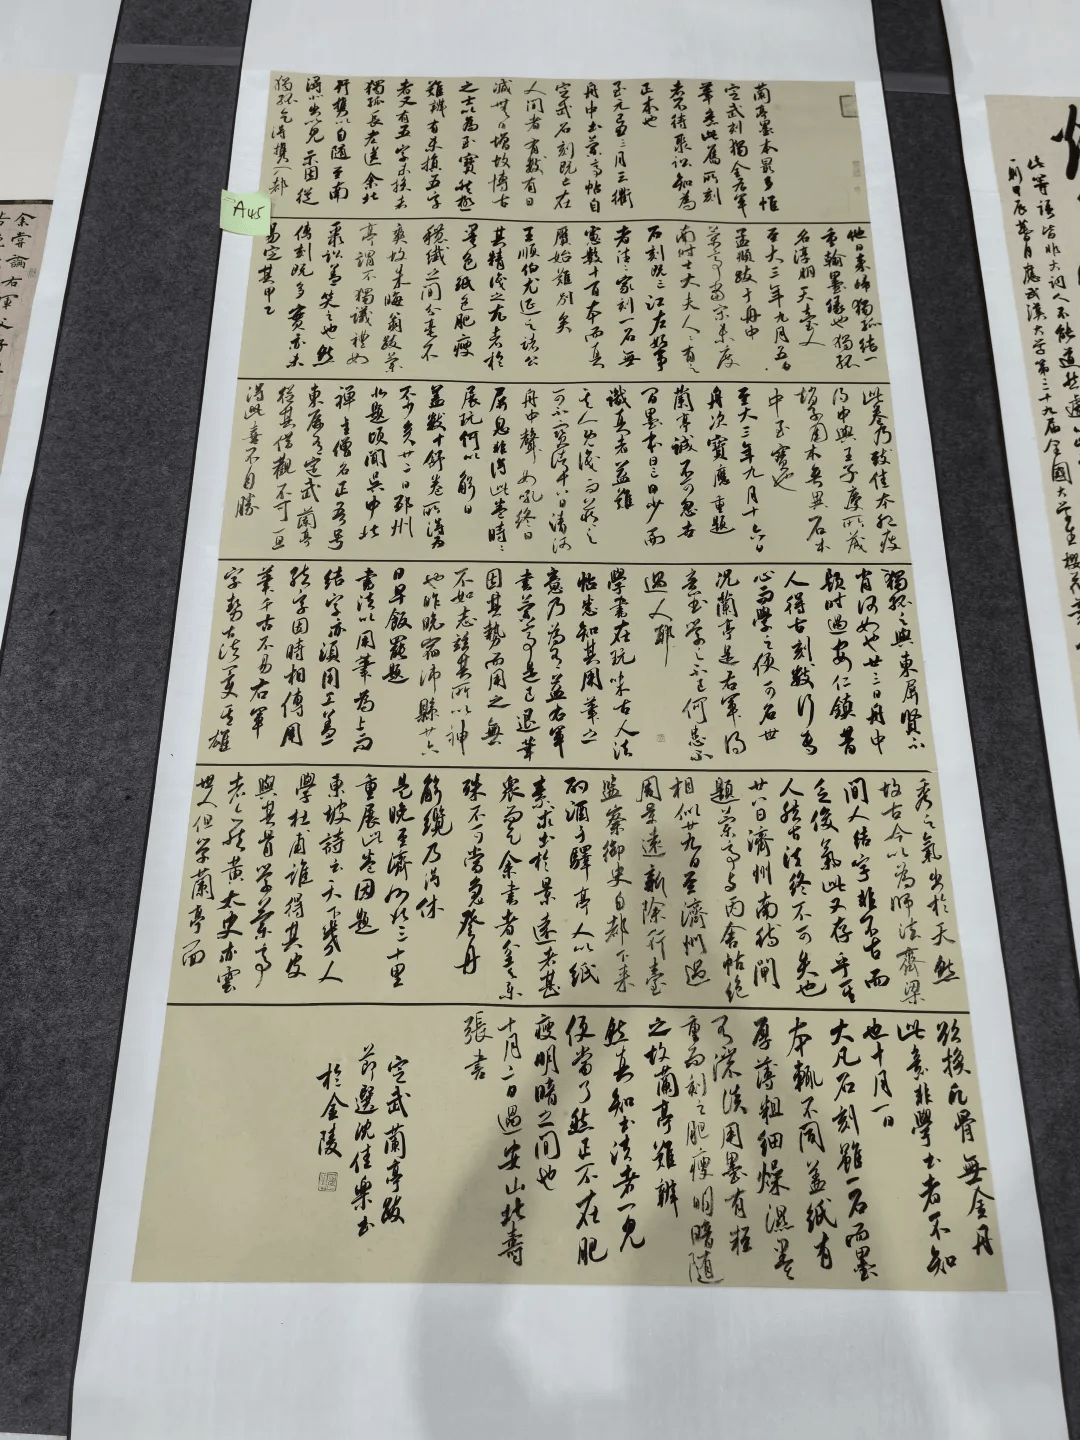 A45
蘭亭墨本最多惟
定武刻獨全右軍
筆意此舊所刻
者不待聚訟知為
正本也
至元
舟中書蘭亭帖自
定武石刻既亡在
人間者有數有日
減無日增故博古
之士以為至寶然極
難辨有未損五字
者又有五字未損者
獨孤長老送余北
行攜以自隨至南
潯北出以見示因從
獨孤乞得攜入都
他日來歸獨孤結一
重翰墨緣也獨孤
名淳朋天臺人
至大三年九月五日
孟頫跋于舟中
蘭亭當宋未度
南時士大夫人人有之
石刻既亡江左好事
者往往家刻一石無
慮數十百本而真
贗始難別矣
王順伯尤延之諸公
其精識之尤者於
墨色紙色肥瘦
穠纖之間分毫不
爽故朱晦翁跋蘭
亭謂不獨議禮如
聚訟蓋笑之也然
傳刻既多實亦未
易定其甲乙
此卷乃致佳本肥瘦
得中與王子慶所藏
趙子固本無異石本
中至寶也
至大三年九月十六日
舟次寶應重題
蘭亭誠不可忽世
間墨本日亡日少而
識真者益難
其人既識而藏之
可不寶諸十八日清河
舟中聲如吼終日
屏息非得此卷時時
展玩何以解日
蓋數十舒卷所得為
不少矣廿二日邳州
北題頃聞吳中北
禪主僧名正吾號
東屏有定武蘭亭
從其借觀不可一旦
得此喜不自勝
獨孤之與東屏賢不
肖何如也廿三日舟中
題時過安仁鎮昔
人得古刻數行專
心而學之便可名世
況蘭亭是右軍得
意書學之不已何患不
過人耶
學書在玩味古人法
帖悉知其用筆之
意乃為有益右軍
書蘭亭是已退筆
因其勢而用之無
不如志茲其所以神
也昨晚宿沛縣廿六
日早飯罷題
書法以用筆為上而
結字亦須用工蓋
結字因時相傳用
筆千古不易右軍
字勢古法一變其雄
秀之氣出於天然
故古今以為師法齊梁
間人結字非不古而
乏俊氣此又存乎其
人然古法終不可失也
廿八日濟州南待閘
題蘭亭與丙舍帖絕
相似廿九日至濟州遇
周景遠新除行臺
監察御史自都下來
酌酒于驛亭人以紙
素求書於景遠者甚
眾而乞余書者坌集
殊不可當急登舟
解纜乃得休
是晚至濟州北三十里
重展此卷因題
東坡詩云天下幾人
學杜甫誰得其皮
與其骨學蘭亭
者亦然黃太史亦雲
世人但學蘭亭面
欲換凡骨無金丹
此意非學書者不知
也十月一日
大凡石刻雖一石而墨
本輒不同蓋紙有
厚薄粗細燥濕墨
有濃淡用墨有輕
重而刻之肥瘦明暗隨
之故蘭亭難辨
然真知書法者一見
便當了然正不在肥
瘦明暗之間也
十月二日過安山北壽
張書
定武蘭亭跋
節選沈佳樂書
於金陵